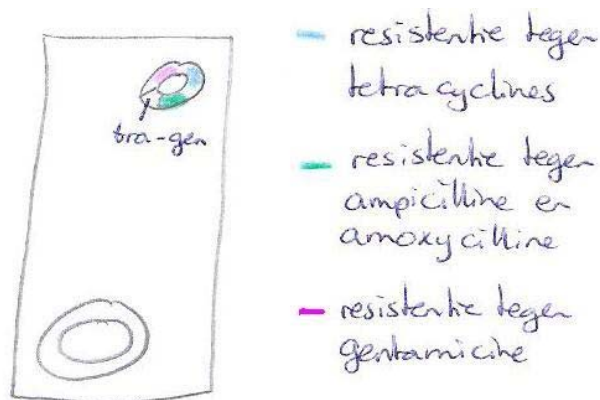 tra-gen
resistentie tegen
tetracyclines
resistentie tegen
ampicilline en
amoxycilline
resistentie tegen
gentamicine